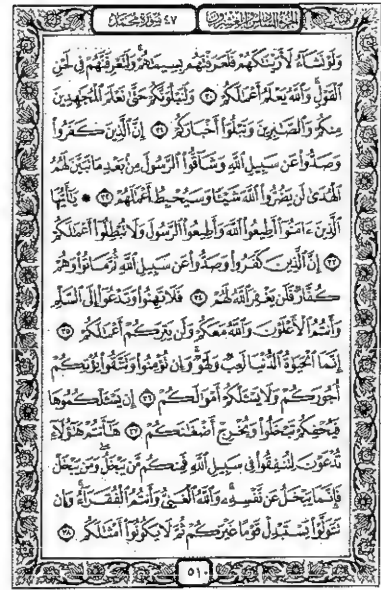 الجزء السادس والعشرون
٤٧ سورة محمد
وَلَوْ نَشَآءُ لَأَرَيْنَٰكَهُمْ فَلَعَرَفْتَهُم بِسِيمَٰهُمْ وَلَتَعْرِفَنَّهُمْ فِى لَحْنِ
ٱلْقَوْلِ وَٱللَّهُ يَعْلَمُ أَعْمَٰلَكُمْ ٣٠ وَلَنَبْلُوَنَّكُمْ حَتَّىٰ نَعْلَمَ ٱلْمُجَٰهِدِينَ
مِنكُمْ وَٱلصَّٰبِرِينَ وَنَبْلُوَا۟ أَخْبَارَكُمْ ٣١ إِنَّ ٱلَّذِينَ كَفَرُوا۟
وَصَدُّوا۟ عَن سَبِيلِ ٱللَّهِ وَشَآقُّوا۟ ٱلرَّسُولَ مِنۢ بَعْدِ مَا تَبَيَّنَ لَهُمُ
ٱلْهُدَىٰ لَن يَضُرُّوا۟ ٱللَّهَ شَيْـًٔا وَسَيُحْبِطُ أَعْمَٰلَهُمْ ٣٢ * يَٰٓأَيُّهَا
ٱلَّذِينَ ءَامَنُوٓا۟ أَطِيعُوا۟ ٱللَّهَ وَأَطِيعُوا۟ ٱلرَّسُولَ وَلَا تُبْطِلُوٓا۟ أَعْمَٰلَكُمْ
٣٣ إِنَّ ٱلَّذِينَ كَفَرُوا۟ وَصَدُّوا۟ عَن سَبِيلِ ٱللَّهِ ثُمَّ مَاتُوا۟ وَهُمْ
كُفَّارٌ فَلَن يَغْفِرَ ٱللَّهُ لَهُمْ ٣٤ فَلَا تَهِنُوا۟ وَتَدْعُوٓا۟ إِلَى ٱلسَّلْمِ
وَأَنتُمُ ٱلْأَعْلَوْنَ وَٱللَّهُ مَعَكُمْ وَلَن يَتِرَكُمْ أَعْمَٰلَكُمْ ٣٥
إِنَّمَا ٱلْحَيَوٰةُ ٱلدُّنْيَا لَعِبٌ وَلَهْوٌ وَإِن تُؤْمِنُوا۟ وَتَتَّقُوا۟ يُؤْتِكُمْ
أُجُورَكُمْ وَلَا يَسْـَٔلْكُمْ أَمْوَٰلَكُمْ ٣٦ إِن يَسْـَٔلْكُمُوهَا
فَيُحْفِكُمْ تَبْخَلُوا۟ وَيُخْرِجْ أَضْغَٰنَكُمْ ٣٧ هَٰٓأَنتُمْ هَٰٓؤُلَآءِ
تُدْعَوْنَ لِتُنفِقُوا۟ فِى سَبِيلِ ٱللَّهِ فَمِنكُم مَّن يَبْخَلُ وَمَن يَبْخَلْ
فَإِنَّمَا يَبْخَلُ عَن نَّفْسِهِۦ وَٱللَّهُ ٱلْغَنِىُّ وَأَنتُمُ ٱلْفُقَرَآءُ وَإِن
تَتَوَلَّوْا۟ يَسْتَبْدِلْ قَوْمًا غَيْرَكُمْ ثُمَّ لَا يَكُونُوٓا۟ أَمْثَٰلَكُم ٣٨
٥١٠